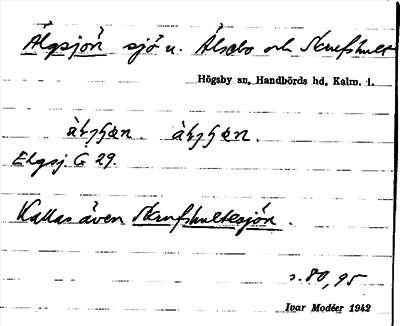 Älgsjön sjö n. Älsebo och Skrufshult
Högsby sn, Handbörds hd, Kalm. l.
Elgsj. G 29.
Kallas även Skrufshultesjön.
s. 80, 95
Ivar Modéer 1942